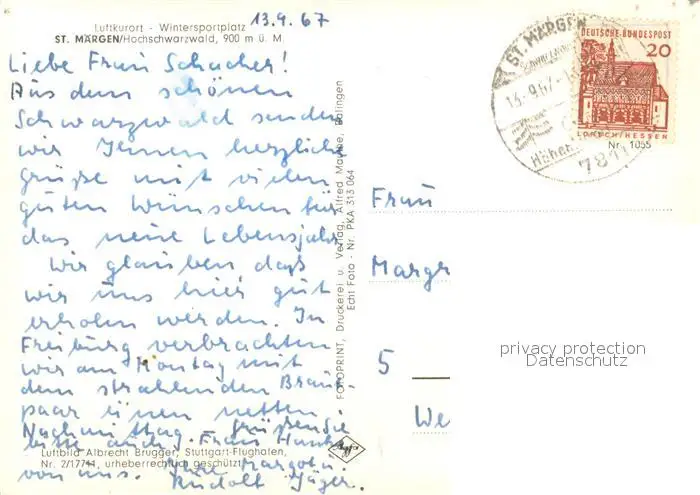 Luftkurort - Wintersportplatz
ST. MÄRGEN/Hochschwarzwald, 900 m ü. M.
13.9.67
Liebe Frau Schacher!
Aus dem schönen
Schwarzwald senden
wir Ihnen herzliche
grüße mit vielen
guten Wünschen für
das neue Lebensjahr
Wir glauben, daß
wir uns hier gut
erholen werden. In
Freiburg verbrachten
wir am Montag mit
dem strahlenden Braut-
paar einen netten
Nachmittag - Grüßen Sie
bitte auch Frau
von uns. Ihre Margot u.
Rudolf Jäger.
Luftbild Albrecht Brugger, Stuttgart-Flughafen,
Nr. 2/17741, urheberrechtlich geschützt
FOTOPRINT, Druckerei u. Verlag, Alfred Mauthe, Balingen
Echt Foto - Nr. PKA 313 064
Agfa
ST. MÄRGEN
13.-9.67
7811
DEUTSCHE BUNDESPOST
20
LORSCH/HESSEN
Nr. 1055
Frau
Margr
5
We
privacy protection
Datenschutz